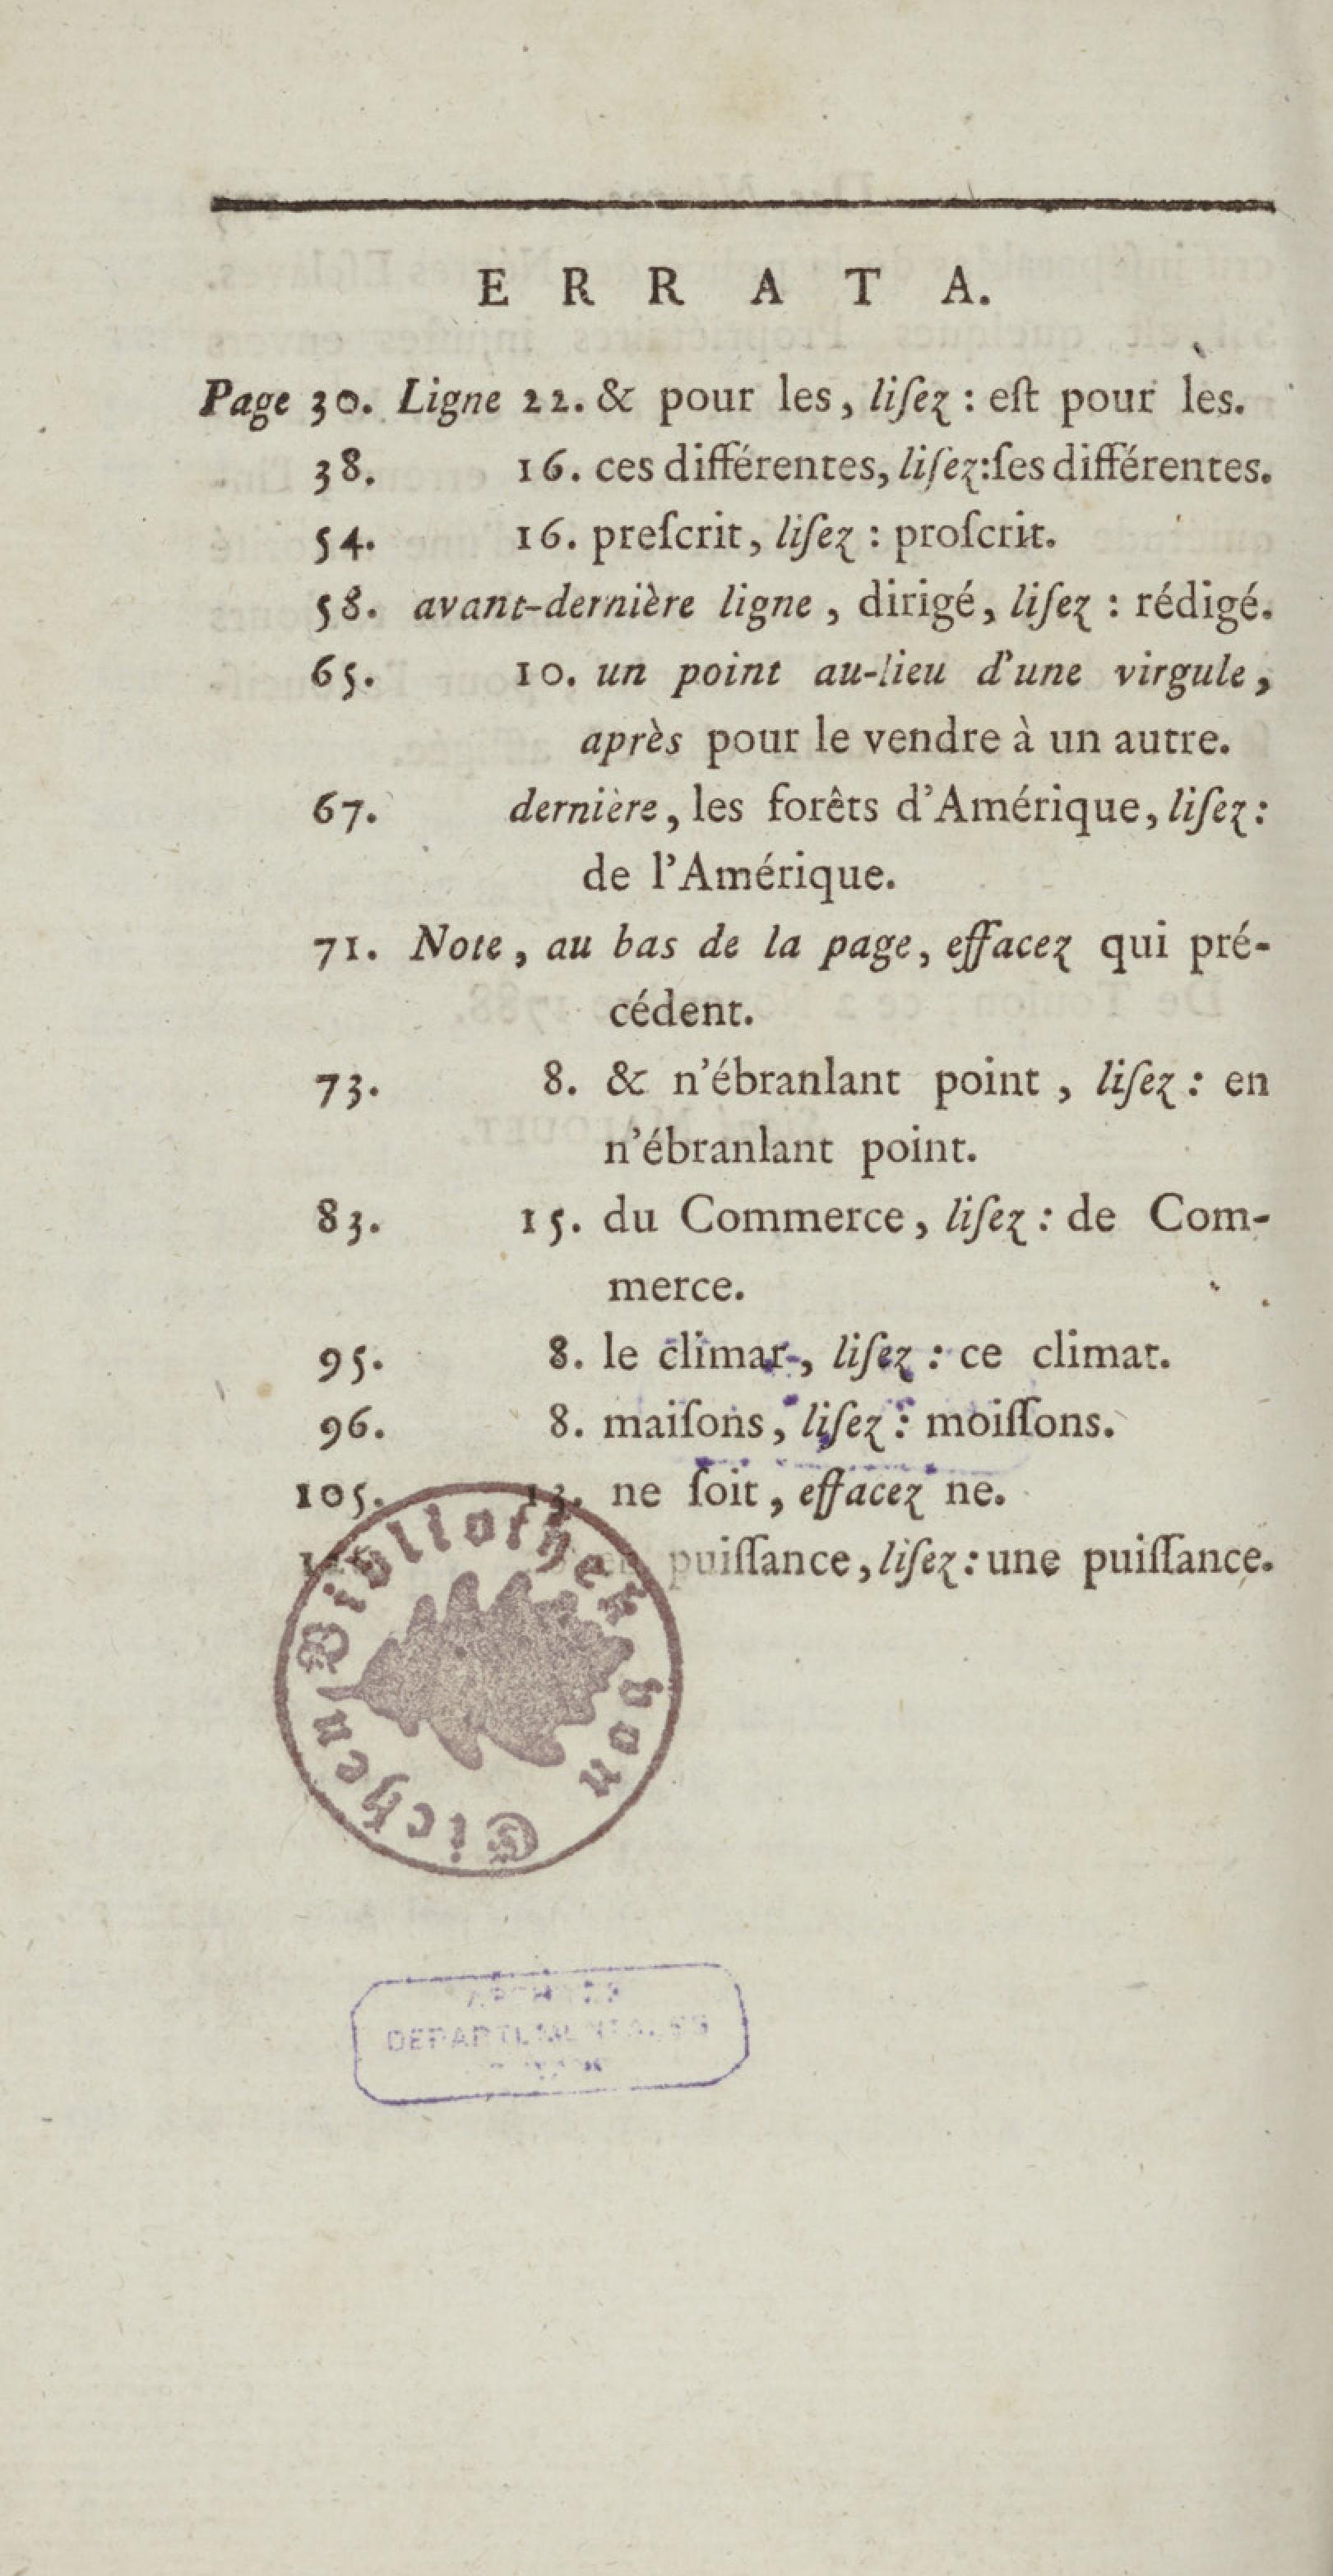 ERRATA.
Page 30. Ligne 22. & pour les, liſez : eſt pour les.
38. 16. ces différentes, liſez:ſes différentes.
54. 16. preſcrit, liſez : proſcrit.
58. avant-dernière ligne, dirigé, liſez : rédigé.
65. 10. un point au-lieu d'une virgule,
après pour le vendre à un autre.
67. dernière, les forêts d'Amérique, liſez:
de l'Amérique.
71. Note, au bas de la page, effacez qui pré-
cédent.
73. 8. & n'ébranlant point, liſez : en
n'ébranlant point.
83. 15. du Commerce, liſez : de Com-
merce.
95. 8. le climat, liſez : ce climat.
96. 8. maiſons, liſez : moiſſons.
105. 13. ne ſoit, effacez ne.
puiſſance, liſez : une puiſſance.
Bibliothek von Eichen
DEPARTEMENTALES